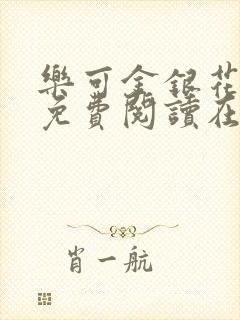 樂可金銀花
免費閱讀在
肖一航